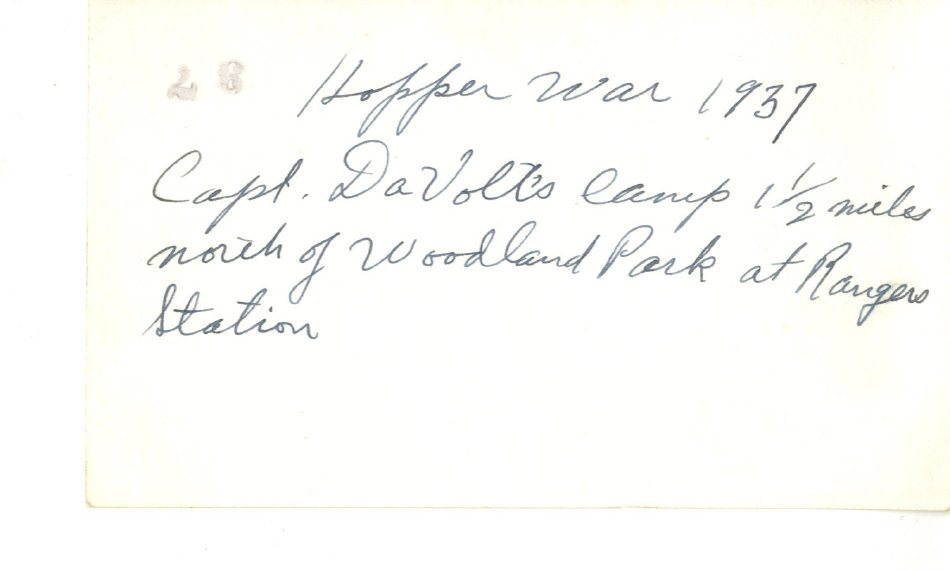 28 Hopper War 1937
Capt. DaVolt's camp 1 1/2 miles
north of Woodland Park at Rangers
Station